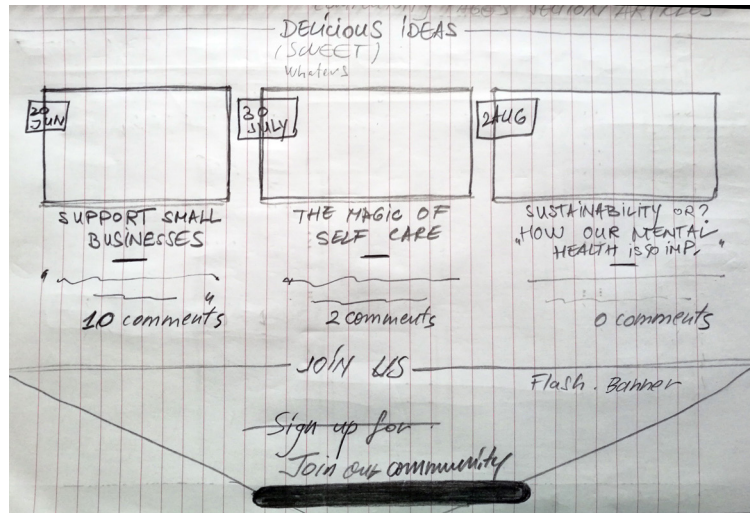 SECTION ARTICLES
DELICIOUS IDEAS
(SWEET)
20
JUN
30
JULY
2AUG
SUPPORT SMALL
BUSINESSES
THE MAGIC OF
SELF CARE
SUSTAINABILITY OR?
"HOW OUR MENTAL
HEALTH is so imp. "
10 comments
2 comments
0 comments
JOIN US
Flash. Banner
Sign up for
Join our community